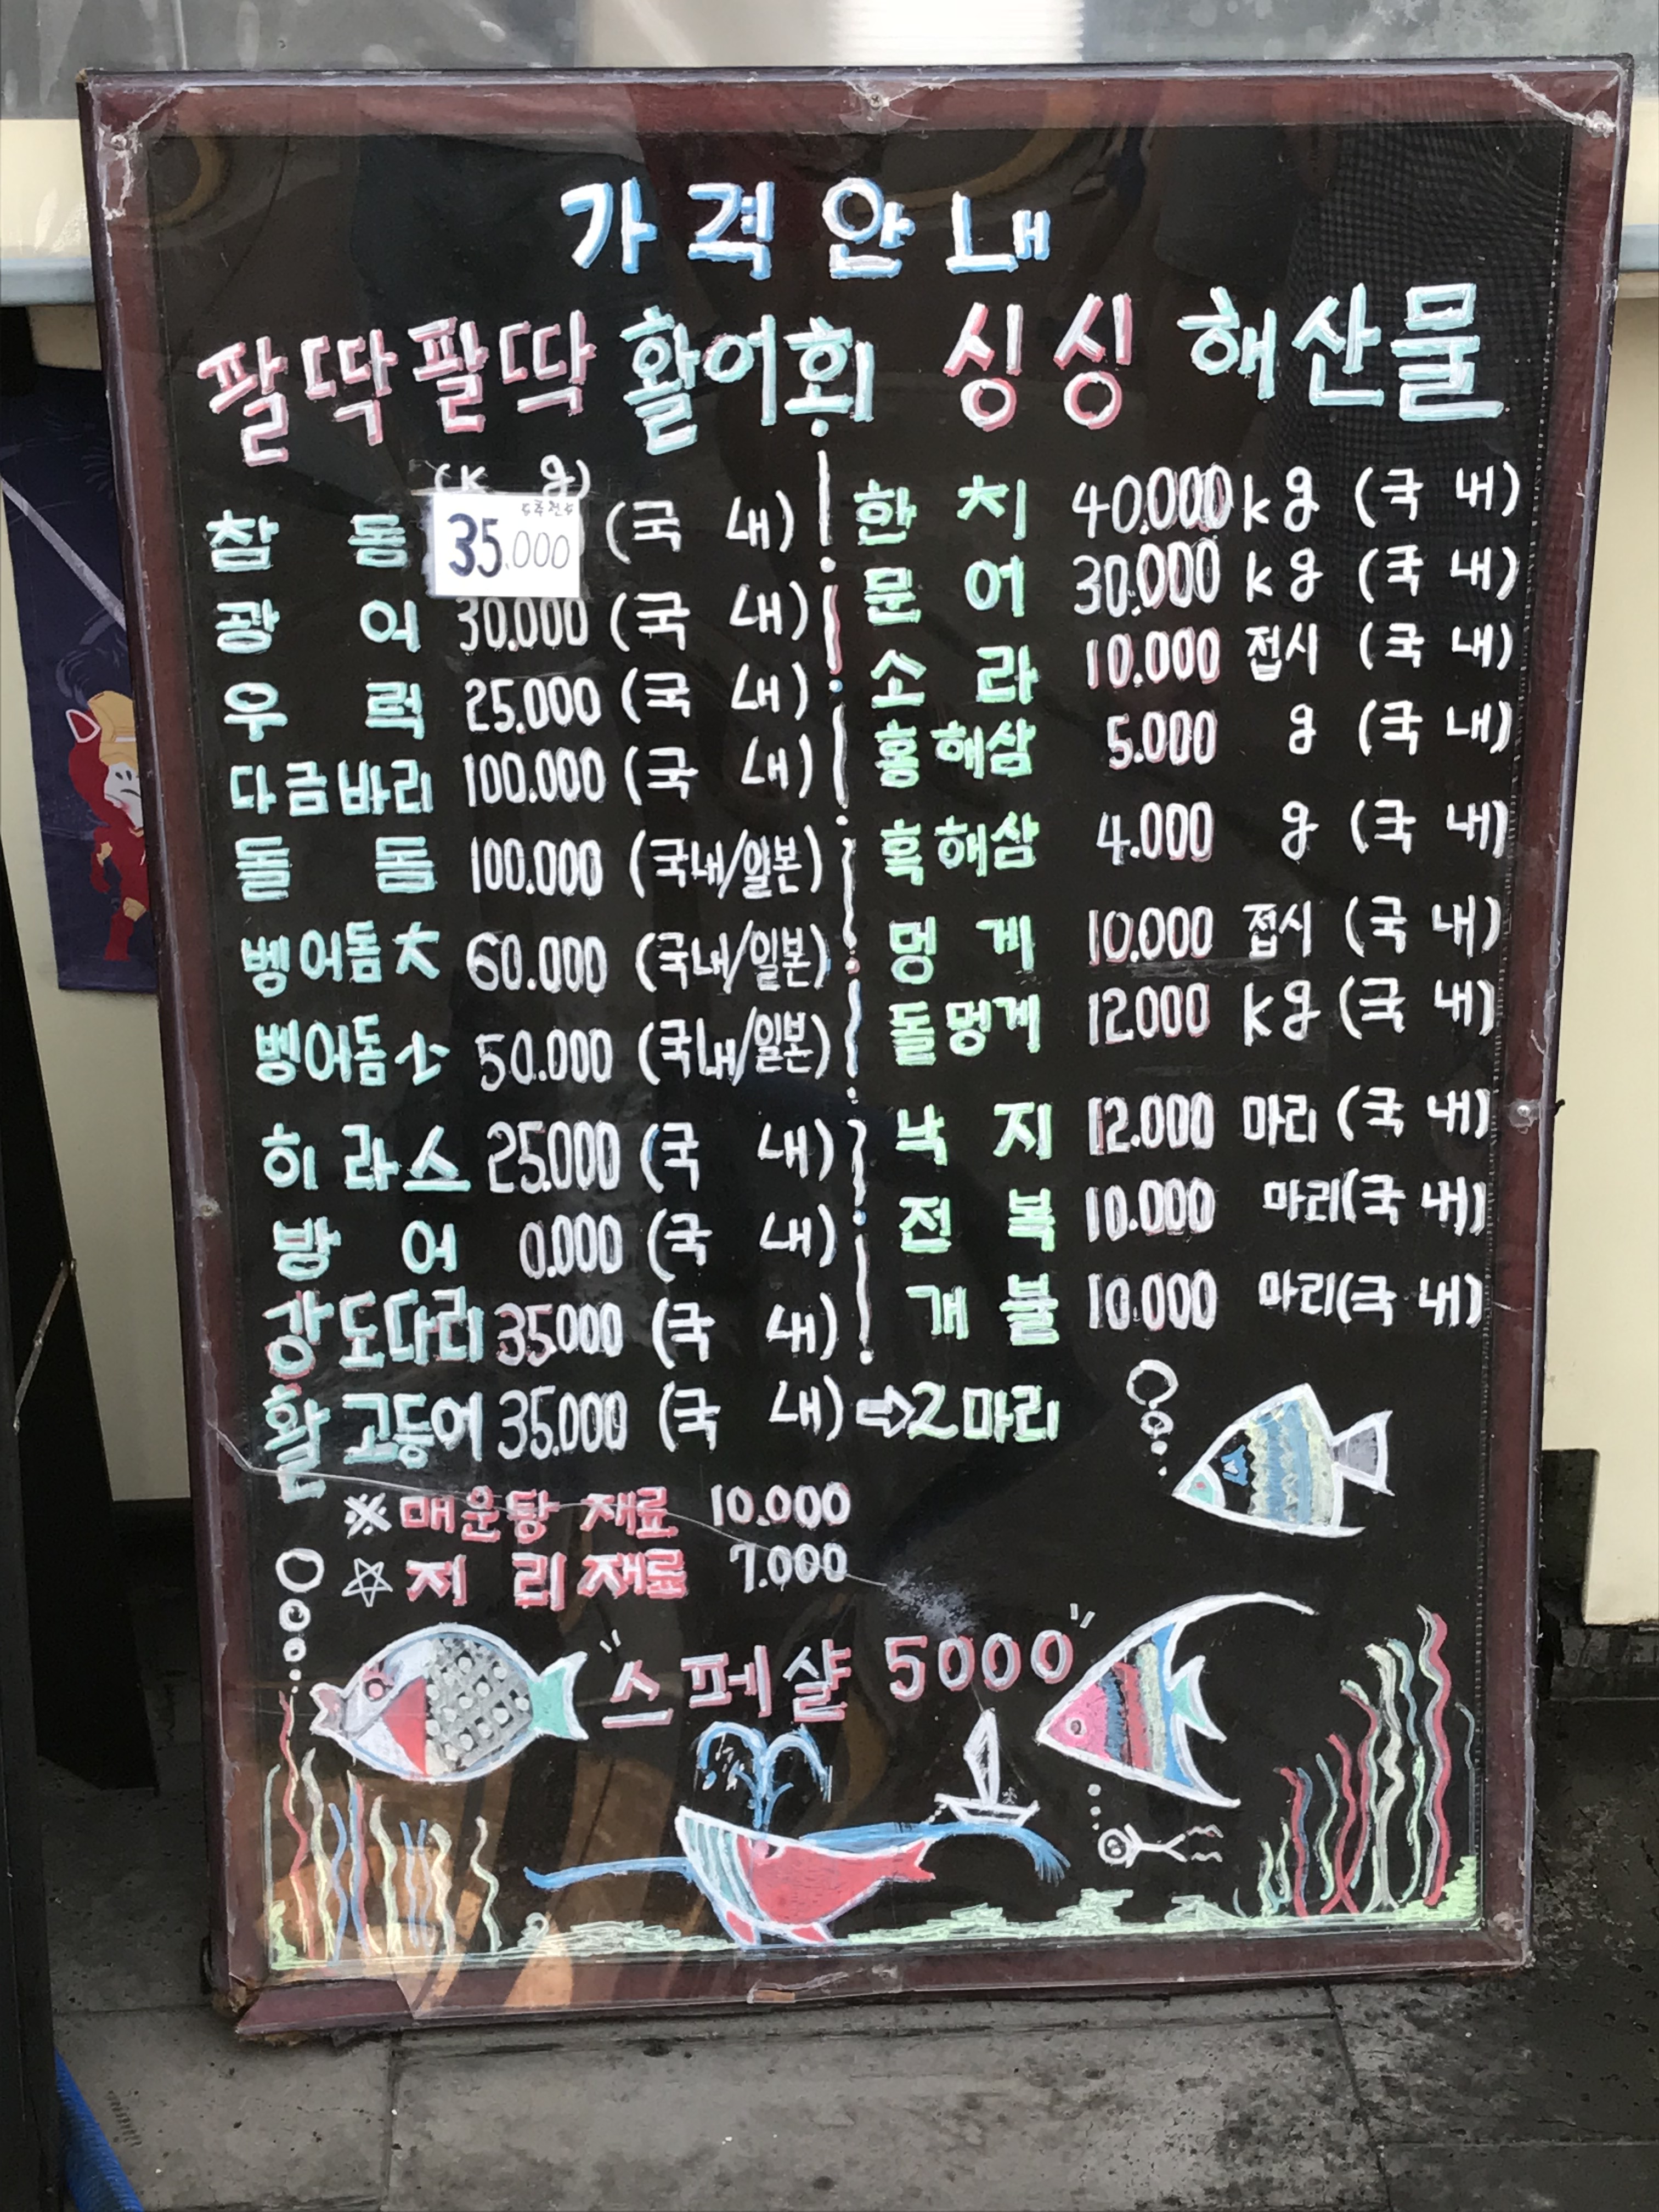 가격안내
팔딱팔딱 활어회 싱싱 해산물
(k g)
참 돔 35.000 (국 내)
광 어 30.000 (국 내)
우 럭 25.000 (국 내)
다금바리 100.000 (국 내)
돌 돔 100.000 (국내/일본)
벵어돔大 60.000 (국내/일본)
벵어돔小 50.000 (국내/일본)
히라스 25.000 (국 내)
방 어 0.000 (국 내)
강도다리 35000 (국 내)
활 고등어 35.000 (국 내) ⇨2마리
한 치 40.000 kg (국 내)
문 어 30.000 kg (국 내)
소 라 10.000 접시 (국 내)
홍해삼 5.000 g (국 내)
흑해삼 4.000 g (국 내)
멍 게 10.000 접시 (국 내)
돌멍게 12000 kg (국 내)
낙 지 12.000 마리 (국 내)
전 복 10.000 마리(국 내)
개 불 10.000 마리(국 내)
※ 매운탕 재료 10.000
☆ 지 리 재료 7.000
"스페샬 5000"